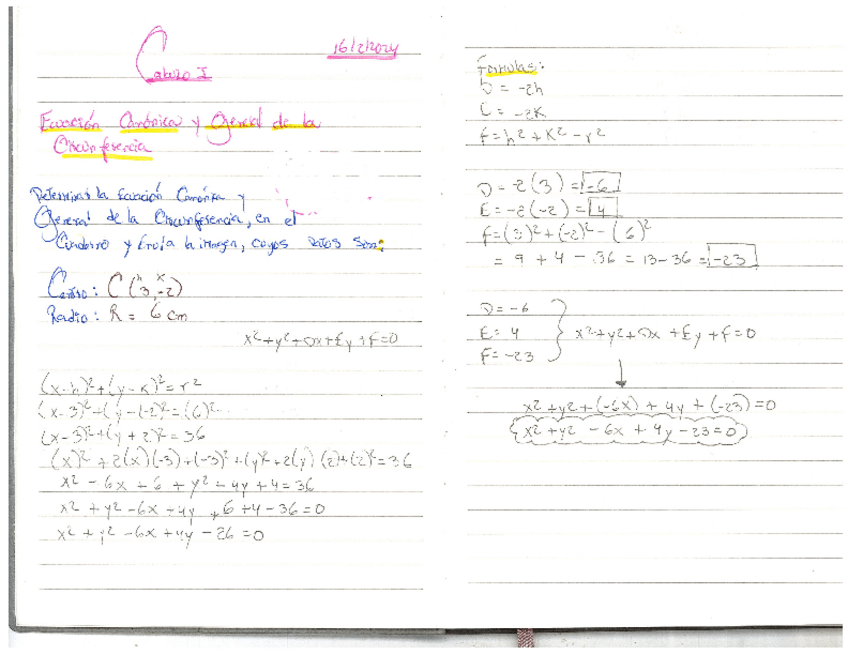 16/2/2024
Ecuación Canónica y General de la
Circunferencia
Determinar la Ecuación Canónica y
General de la Circunferencia, en el
Cuaderno y Envía la imagen, cuyos Datos son:
h K
Centro: C (3,-2)
Radio: R = 6 cm
x²+y²+Dx+Ey+F=0
(x-h)²+(y-K)²=r²
(x-3)²+(y-(-2)²=(6)²
(x-3)²+(y+2)²=36
(x)²+2(x)(-3)+(-3)²+(y)²+2(y)(2)+(2)²=36
x²-6x+6+y²+4y+4=36
x²+y²-6x+4y+6+4-36=0
x²+y²-6x+4y-26=0
Formulas:
D = -2h
E = -2K
F=h²+K²-r²
D=-2(3)=-6
E=-2(-2)=4
F=(3)²+(-2)²-(6)²
= 9+4-36=13-36=-23
D=-6
E=4
F=-23
x²+y²+Dx+Ey+F=0
x²+y²+(-6x)+4y+(-23)=0
x²+y²-6x+4y-23=0